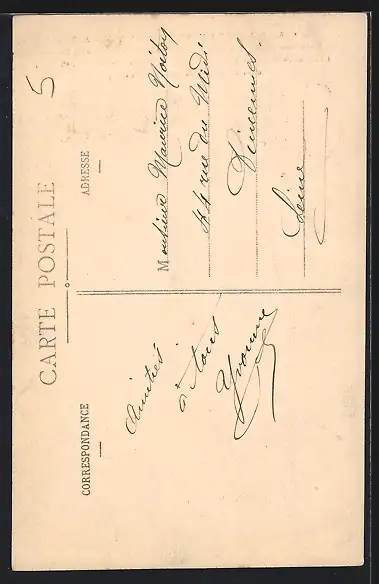 5
CARTE POSTALE
CORRESPONDANCE
ADRESSE
Amitiés
à tous
Yvonne
Monsieur Maurice
44 rue du Midi
Vincennes
Seine